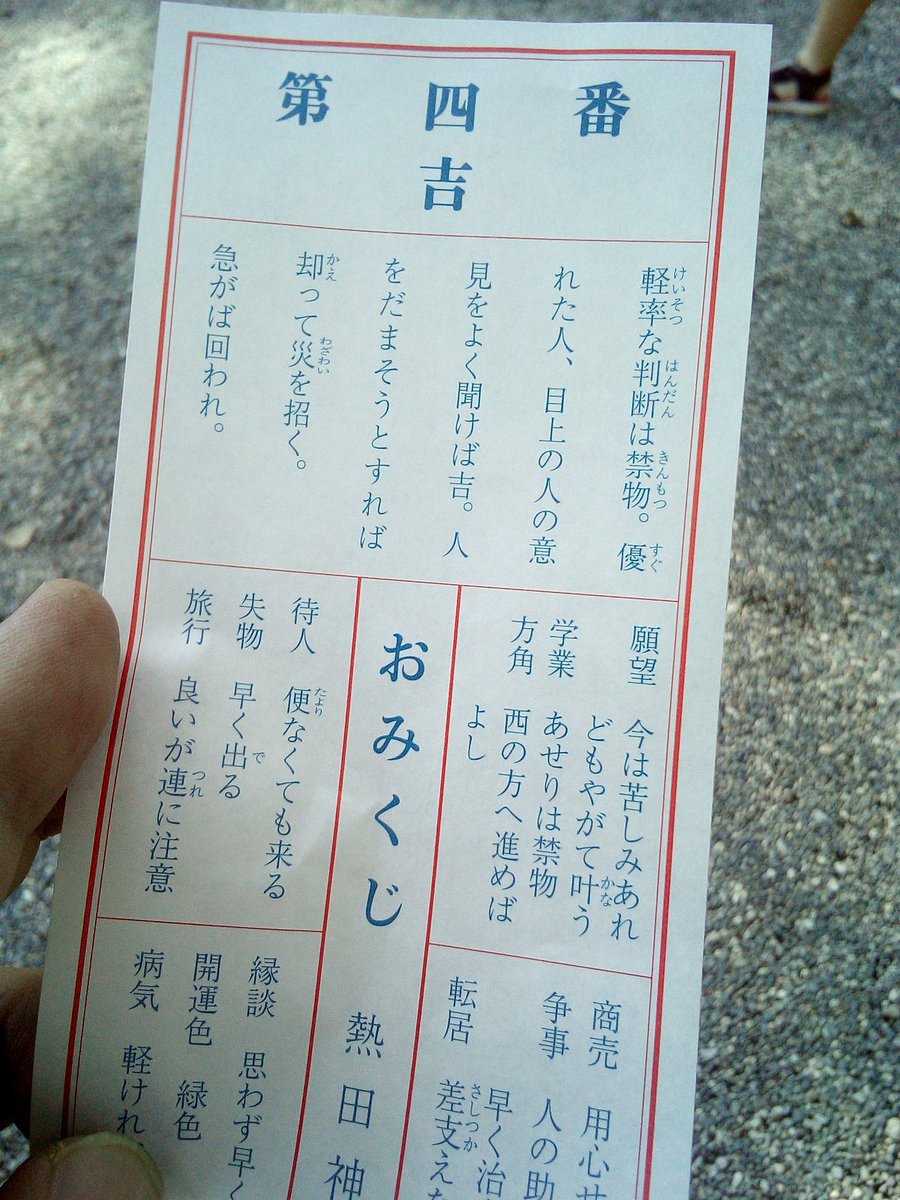 第四番
吉
軽率な判断は禁物。優
れた人、目上の人の意
見をよく聞けば吉。人
をだまそうとすれば
却って災を招く。
急がば回われ。
願望 今は苦しみあれ
どもやがて叶う
学業 あせりは禁物
方角 西の方へ進めば
よし
商売 用心せ
争事 人の助
早く治
転居 差支えな
おみくじ 熱田神
待人 便なくても来る
失物 早く出る
旅行 良いが連に注意
縁談 思わず早く
開運色 緑色
病気 軽けれ